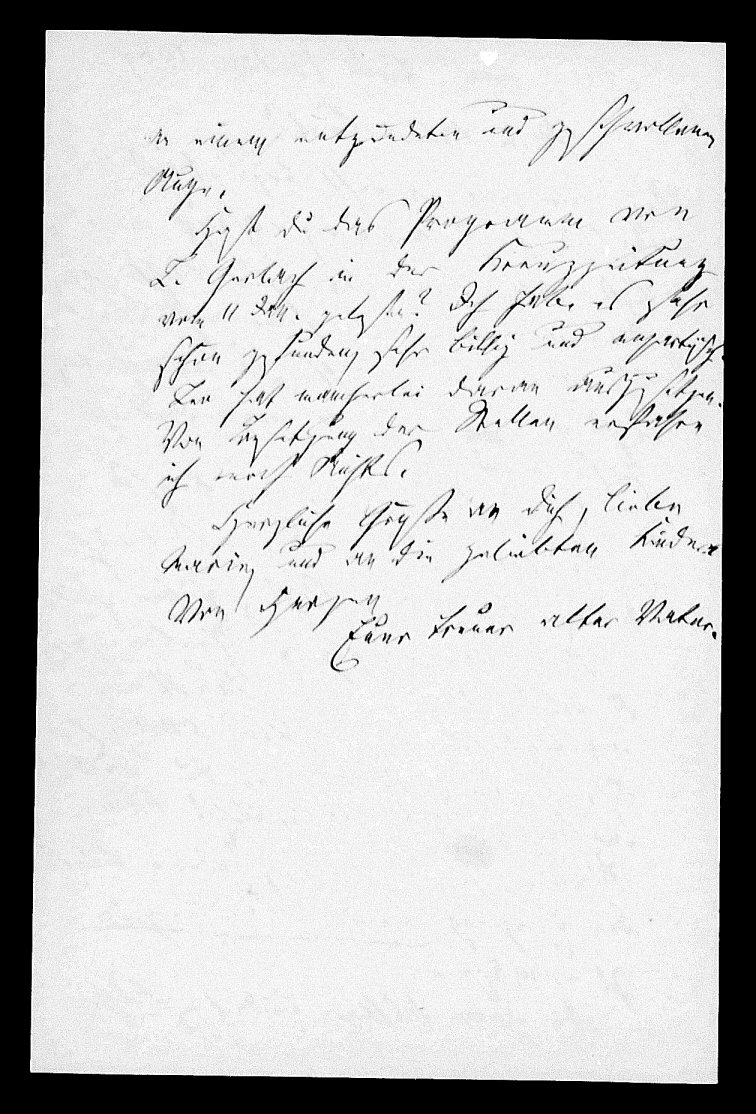 an einem entzündeten und geschwollenen
Auge.
Hast du das Programm von
L. Gerlach in der Kreuzzeitung
vom 11 Jan. gelesen? Ich habe es sehr
schön gefunden, sehr billig und
hat mancherlei daran auszusetzen.
Von Besetzung der Stellen erfahre
ich noch Nichts.
Herzliche Grüße an Dich, liebe
Marie, und an die geliebten Kinder
Von Herzen
Euer treuer alter Vater.